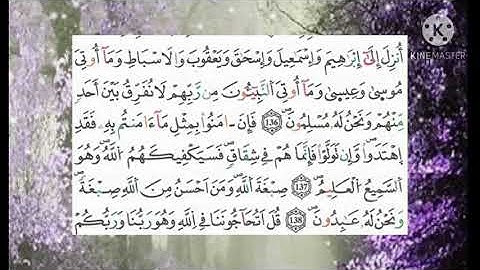 KINEMASTER
أُنزِلَ إِلَىٰٓ إِبْرَٰهِيمَ وَإِسْمَٰعِيلَ وَإِسْحَٰقَ وَيَعْقُوبَ وَالَاسْبَاطِ وَمَآ أُوتِىَ
مُوسَىٰ وَعِيسَىٰ وَمَآ أُوتِىَ اَ۬لنَّبِيٓـُٔونَ مِن رَّبِّهِمْ لَا نُفَرِّقُ بَيْنَ أَحَدٍ
مِّنْهُمْ وَنَحْنُ لَهُۥ مُسْلِمُونَ 136 فَإِنَ اٰمَنُوا۟ بِمِثْلِ مَآ ءَامَنتُم بِهِۦ فَقَدِ
اِ۪هْتَدَوا۟ وَّإِن تَوَلَّوْا۟ فَإِنَّمَا هُمْ فِى شِقَاقٍ فَسَيَكْفِيكَهُمُ اُ۬للَّهُ وَهُوَ
اَ۬لسَّمِيعُ اُ۬لْعَلِيمُ 137 صِبْغَةَ اَ۬للَّهِ وَمَنَ اَحْسَنُ مِنَ اَ۬للَّهِ صِبْغَةً
وَنَحْنُ لَهُۥ عَٰبِدُونَ 138 قُلَ اَتُحَآجُّونَنَا فِى اِ۬للَّهِ وَهُوَ رَبُّنَا وَرَبُّكُمْ